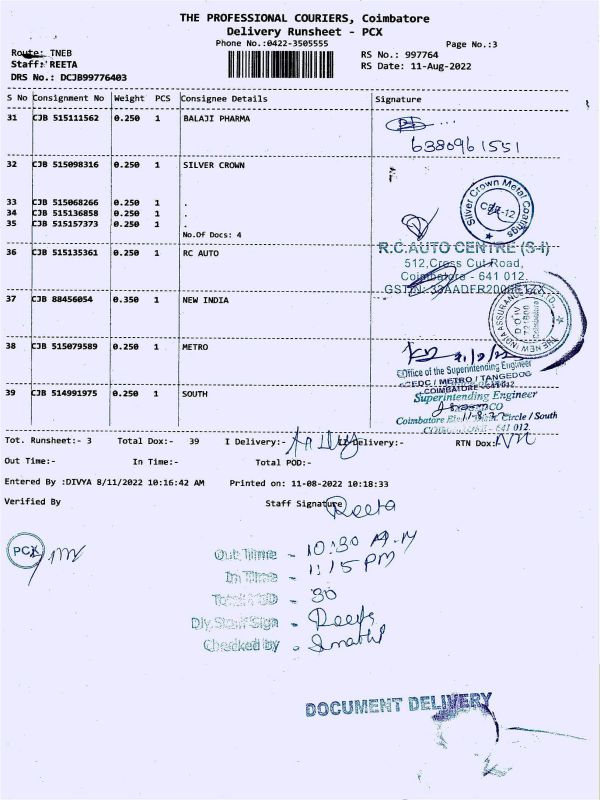 THE PROFESSIONAL COURIERS, Coimbatore
Delivery Runsheet - PCX
Phone No.:0422-3505555
Page No.:3
Route: TNEB
RS No.: 997764
Staff: REETA
RS Date: 11-Aug-2022
DRS No.: DCJB99776403
S No Consignment No Weight PCS Consignee Details Signature
31 CJB 515111562 0.250 1 BALAJI PHARMA
6380961551
32 CJB 515098316 0.250 1 SILVER CROWN
Silver Crown Metal Coatings
33 CJB 515068266 0.250 1 .
34 CJB 515136858 0.250 1 .
35 CJB 515157373 0.250 1 .
No.Of Docs: 4
36 CJB 515135361 0.250 1 RC AUTO
R.C.AUTO CENTRE (S-I)
512,Cross Cut Road,
Coimbatore - 641 012.
37 CJB 88456054 0.350 1 NEW INDIA
THE NEW INDIA ASSURANCE
38 CJB 515079589 0.250 1 METRO
Office of the Superintending Engineer
METRO / TANGEDCO
COIMBATORE
39 CJB 514991975 0.250 1 SOUTH
Superintending Engineer
Coimbatore Circle / South
641 012.
Tot. Runsheet:- 3 Total Dox:- 39 I Delivery:- II Delivery:- RTN Dox:-
Out Time:- In Time:- Total POD:-
Entered By :DIVYA 8/11/2022 10:16:42 AM Printed on: 11-08-2022 10:18:33
Verified By Staff Signature
Reeta
PCX
Out Time - 10:30 A.M
In Time - 1:15 PM
Total POD - 30
Dly Staff Sign - Reeta
Checked by -
DOCUMENT DELIVERY